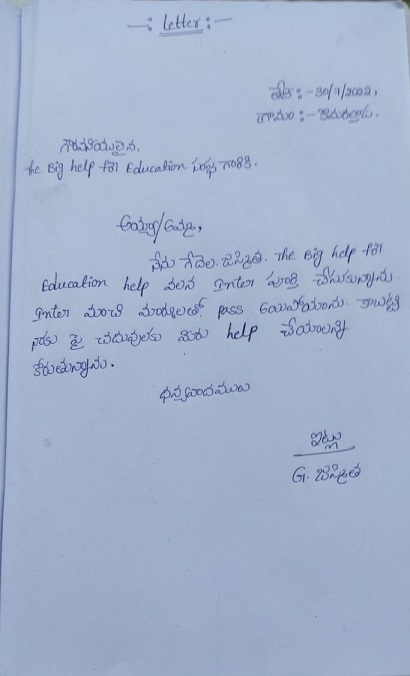 —: Letter :—
తేది :- 30/7/2022,
గ్రామం :- కొమరల్తాడ.
గౌరవనీయులైన,
the Big help for Education సంస్థ గారికి.
అయ్యా/అమ్మా,
నేను గేదెల. జెస్మిత. The Big help for
Education help వలన Inter పూర్తి చేసుకున్నాను.
Inter మంచి మార్కులతో pass అయిపోయాను. కాబట్టి
నాకు పై చదువులకు మీరు help చేయాలని
కోరుతున్నాను.
ధన్యవాదములు
ఇట్లు
G. జెస్మిత